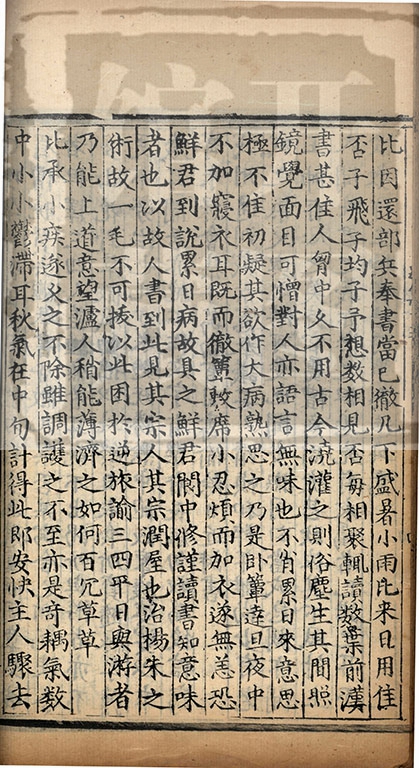 比因還部兵奉書當已徹几下盛暑小雨比来日用佳
否子飛子均子予想數相見否每相聚輒讀數葉前漢
書甚佳人胷中久不用古今澆灌之則俗塵生其間照
鏡覺面目可憎對人亦語言無味也不肖累日來意思
極不佳初疑其欲作大病熟思之乃是卧簟達旦夜中
不加寢衣耳既而徹簟席小忍煩而加衣遂無恙恐
鮮君到說累日病故具之鮮君閬中修謹讀書知意味
者也以故人書到此見其宗人其宗潤屋也治楊朱之
術故一毛不可拔以此困於逆旅諭三四平日與游者
乃能上道意望瀘人稍能薄濟之如何百冗草草
比承小疾遂久之不除雖調護之不至亦是奇耦氣數
中小小鬱滯耳秋氣在中旬計得此即安快主人驟去